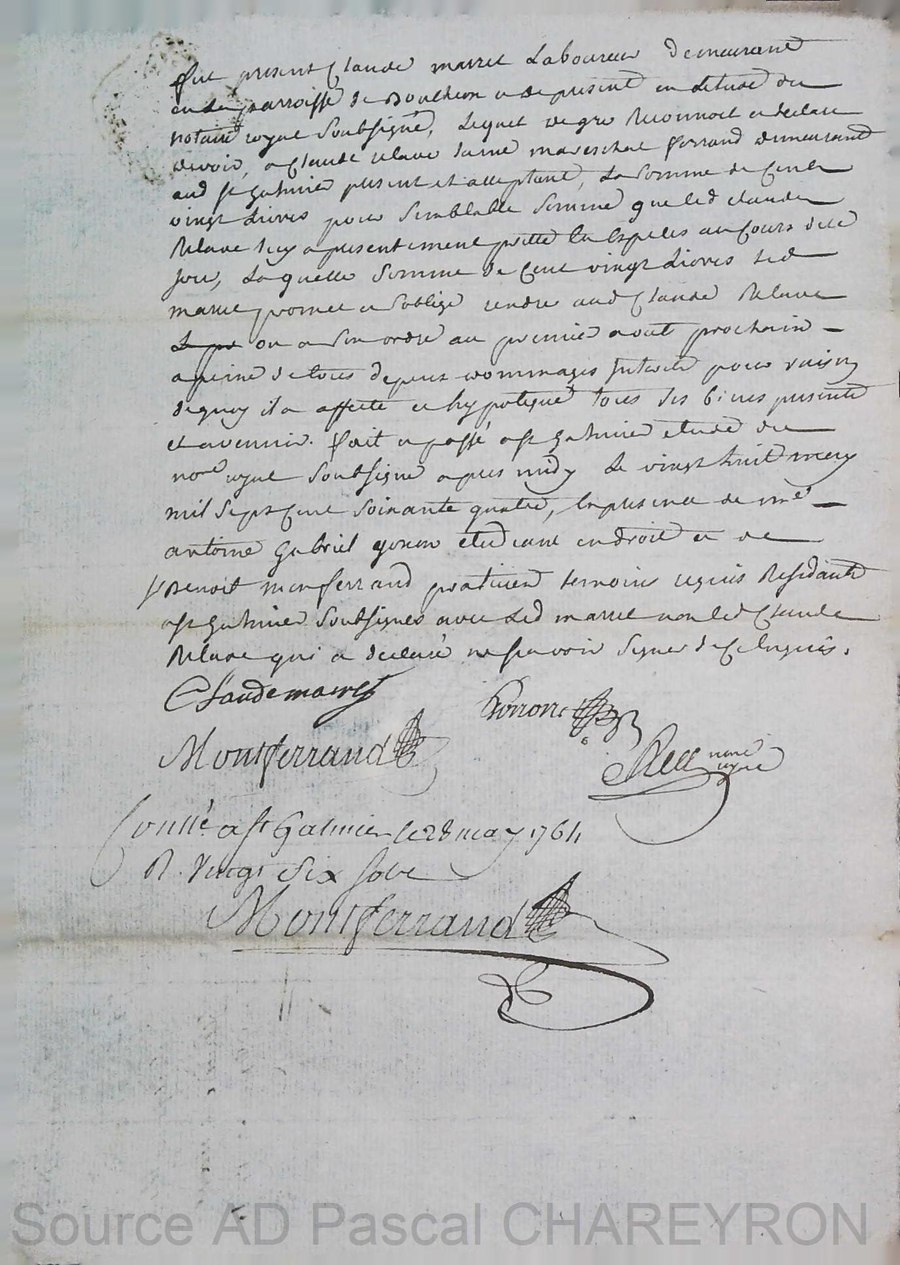 fut present Claude marret Laboureur demeurant
en la parroisse de Boutheon a de present en letude du
notaire royal soubsigné, Lequel de gré Reconnoit et declare
devoir, a Claude relave lainé mareschal ferrand demeurant
aud st galmier present et acceptant, La somme de cent
vingt livres pour semblable somme que led claude
Relave luy a presentement pretté en Especes au Cours de ce
jour, Laquelle somme de Cent vingt Livres led
marret promet et soblige rendre aud Claude Relave
ou a son ordre au premier aout prochain
a peine de tous depens dommages Interets pour raison
dequoy il a affecté et hypotequé tous ses biens presents
et avenir. fait et passé a st galmier etude du
nore royal soubsigné apres midy Le vingt huit may
mil sept cent soixante quatre, En presence de me
antoine gabriel gonon etudiant en droit et de
sr Benoit monferrand praticien temoins requis Residants
a st galmier soubsignés avec Led marret non led Claude
Relave qui a declaré ne scavoir signer de ce Enquis.
Claude marret
Gonon
Montferrand
nore
royal
Conllé a st Galmier le 28 may 1764
R. vingt six sols
Montferrand
Source AD Pascal CHAREYRON